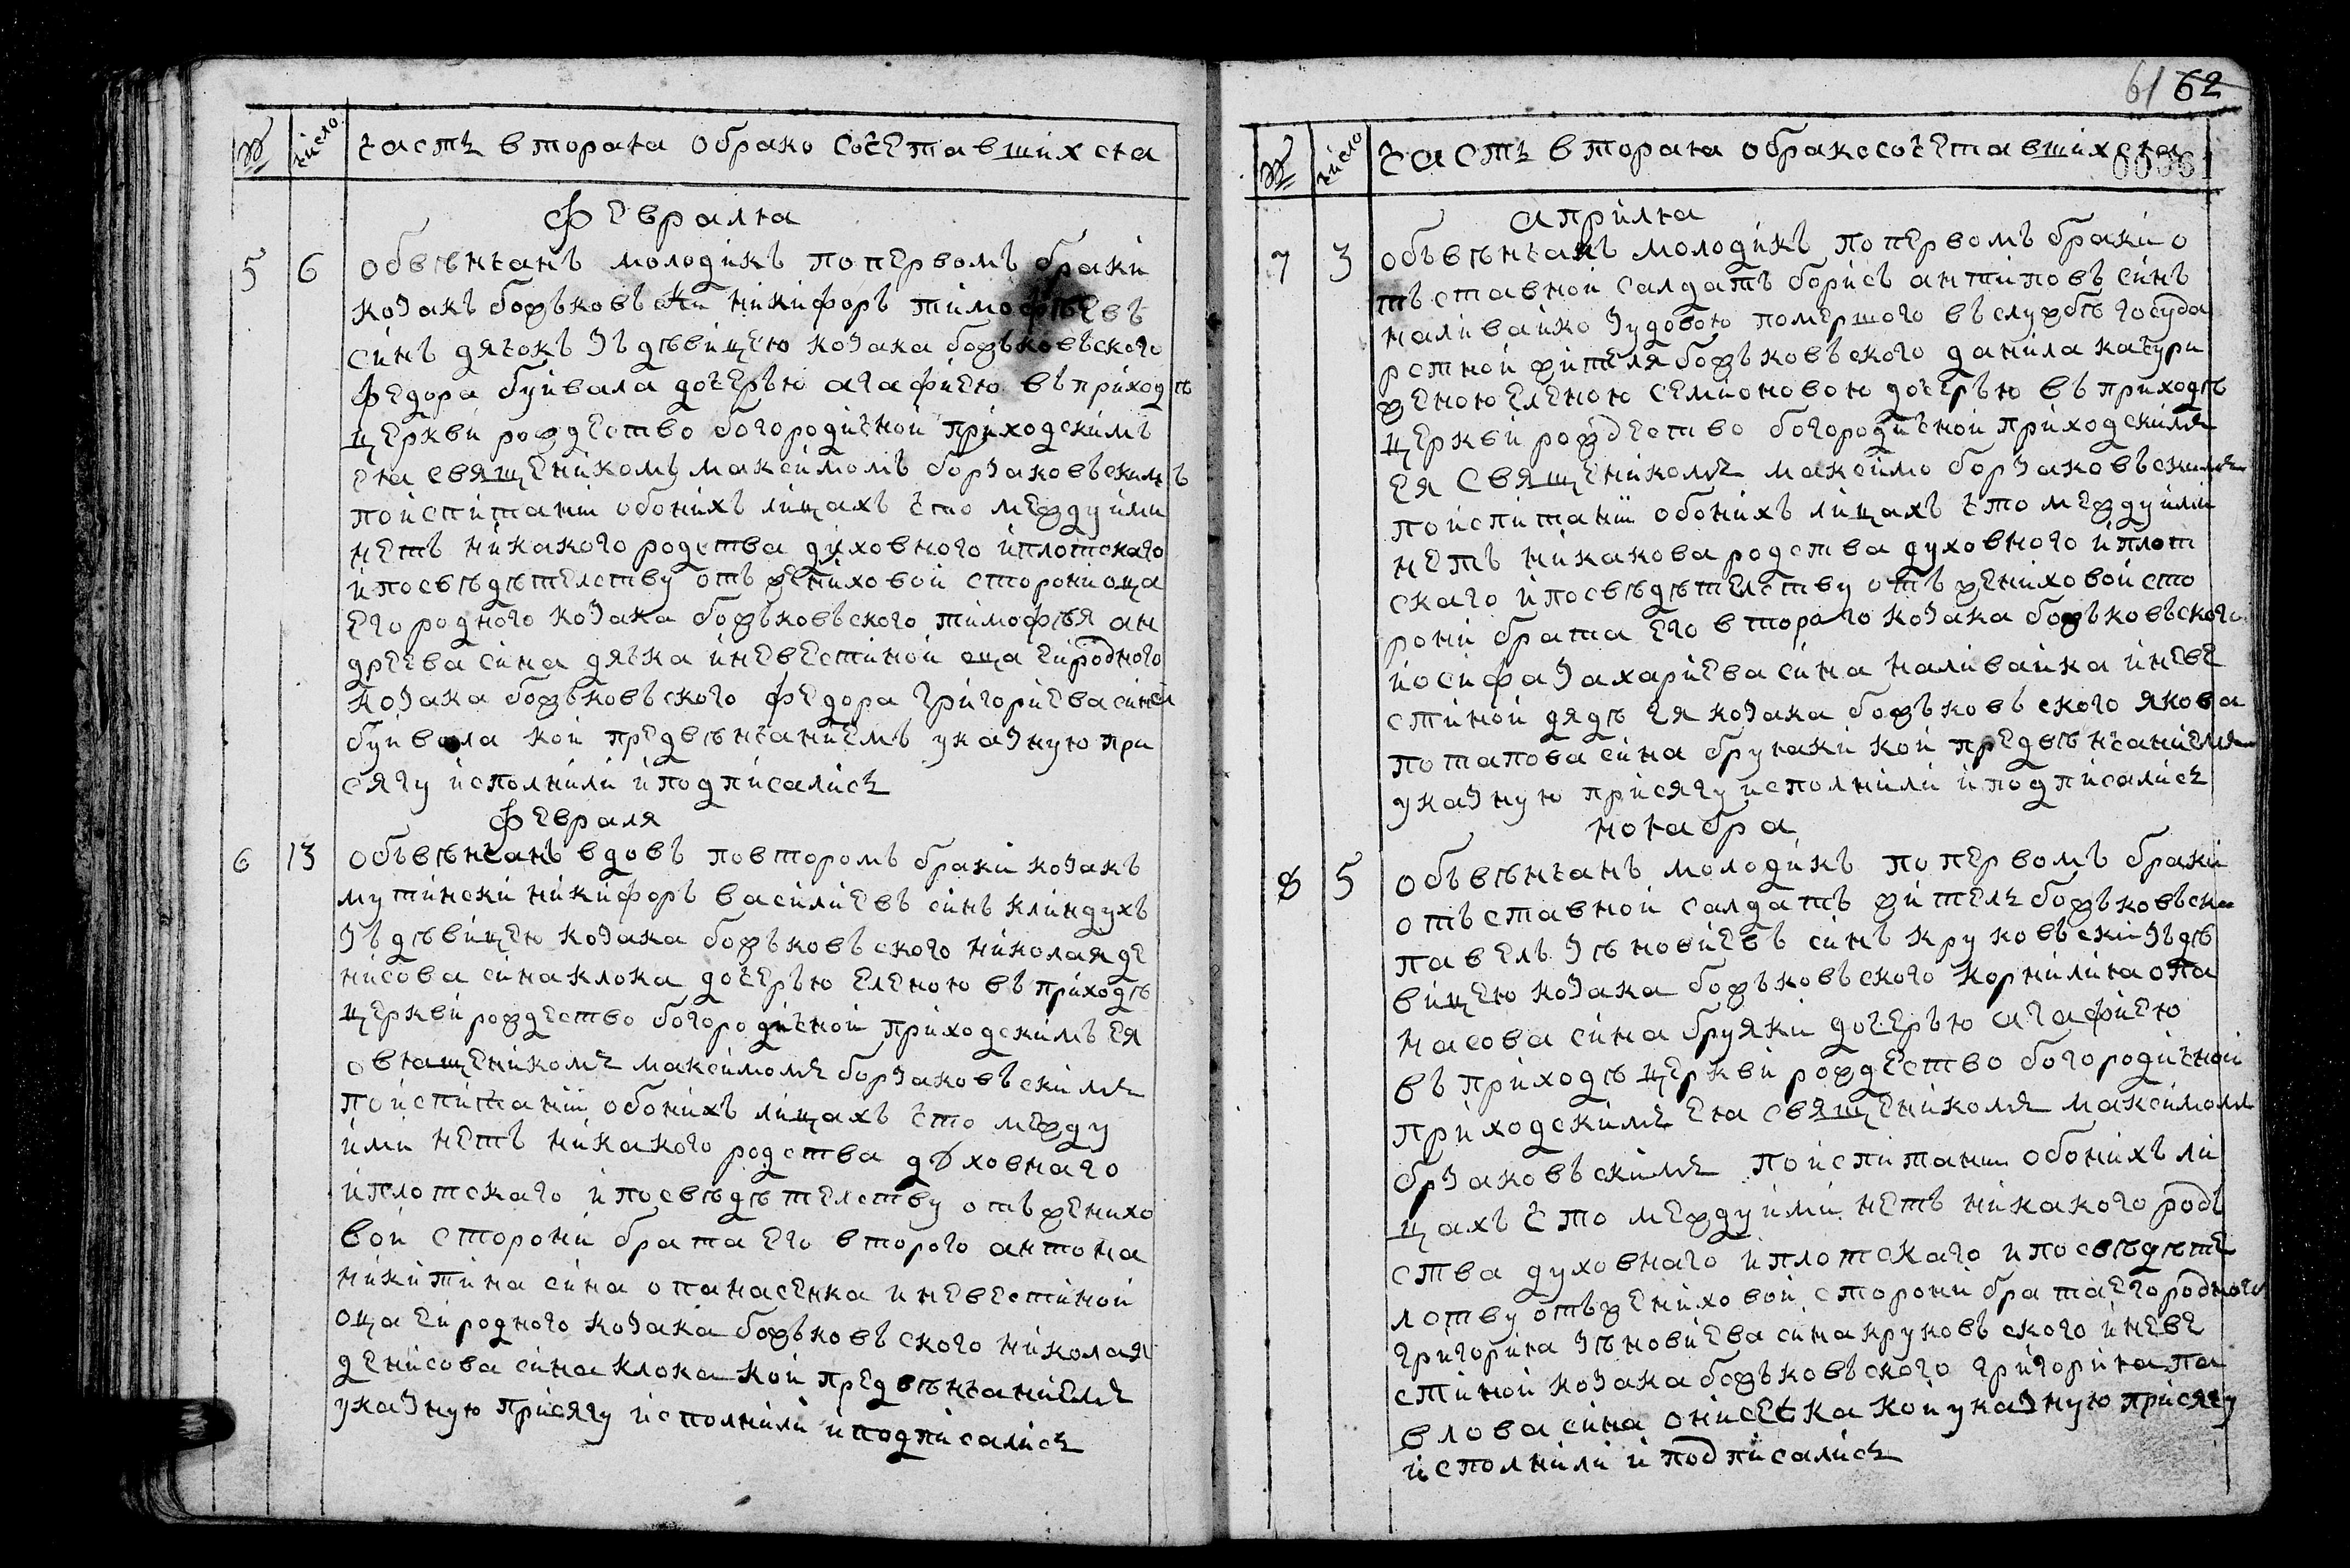 № число часть вторая о брако сочетавшихся
февраля
5 6 обвѣнчанъ молодикъ попервомъ браки
козакъ божъковъски никифоръ тимофѣевъ
синъ дячокъ зъ дѣвицею козака божъковъского
федора буйвала дочерью агафиею въ приходѣ
церкви рождество богородичной приходскимъ
ея священикомъ максимомъ борзаковъскимъ
поиспитании обоихъ лицахъ что междуими
нетъ никакого родства духовного иплотскаго
ипосвѣдѣтелству отъ жениховой сторони оца
его родного козака божъковъского тимофѣя ан
дреева сина дячка иневестиной оца еи родного
козака божъковъского федора григориева сина
буйвала кои предвѣнчаниемъ указную при
сягу исполнили иподписались
февраля
6 13 объвѣнчанъ вдовъ повторомъ браки козакъ
мутински никифоръ василиевъ синъ клиндухъ
зъ дѣвицею козака божъковъского николая де
нисова сина клока дочерью еленою въ приходѣ
церкви рождество богородичной приходскимъ ея
священикомъ максимомъ борзаковъскимъ
поиспитании обоихъ лицахъ что между
ими нетъ никакого родства духовнаго
иплотскаго ипосвѣдѣтелству отъ женихо
вой сторони брата его второго антона
никитина сина опанасенка иневестиной
оца еи родного козака божъковъского николая
денисова сина клока кои предвѣнчаниемъ
указную присягу исполнили иподписались
61 62
№ число часть вторая о бракосочетавшихся
00061
априля
7 3 объвѣнчанъ молодикъ попервомъ браки о
тъставной салдатъ борисъ антиповъ синъ
наливайко зудовою помершого въ службѣ государ
ственной жителя божъковъского данила качури
женою еленою семионовою дочерью въ приходѣ
церкви рождество богородичной приходскимъ
ея священикомъ максимо борзаковъскимъ
поиспитании обоихъ лицахъ что междуими
нетъ никакова родства духовного иплот
скаго ипосвѣдѣтелству отъ жениховой сто
рони брата его второго козака божъковъского
иосифа захариева сина наливайка иневе
стиной дядѣ ея козака божъковъского якова
потапова сина бруяки кои предвѣнчаниемъ
указную присягу исполнили иподписались
ноября
8 5 объвѣнчанъ молодикъ попервомъ браки
отъставной салдатъ житель божъковъски
павелъ зѣновиевъ синъ круковъски зъ дѣ
вицею козака божъковъского корнилия опа
насова сина бруяки дочерью агафиею
въ приходѣ церкви рождество богородичной
приходскимъ ея священикомъ максимомъ
брзаковъскимъ поиспитании обоихъ ли
цахъ что междуими нетъ никакого родъ
ства духовнаго иплотскаго ипосвѣдѣте
лству отъ жениховой сторони брата его родного
григория зѣновиева сина круковъского иневе
стиной козака божъковъского григория па
влова сина онисечка кои указную присягу
исполнили иподписались